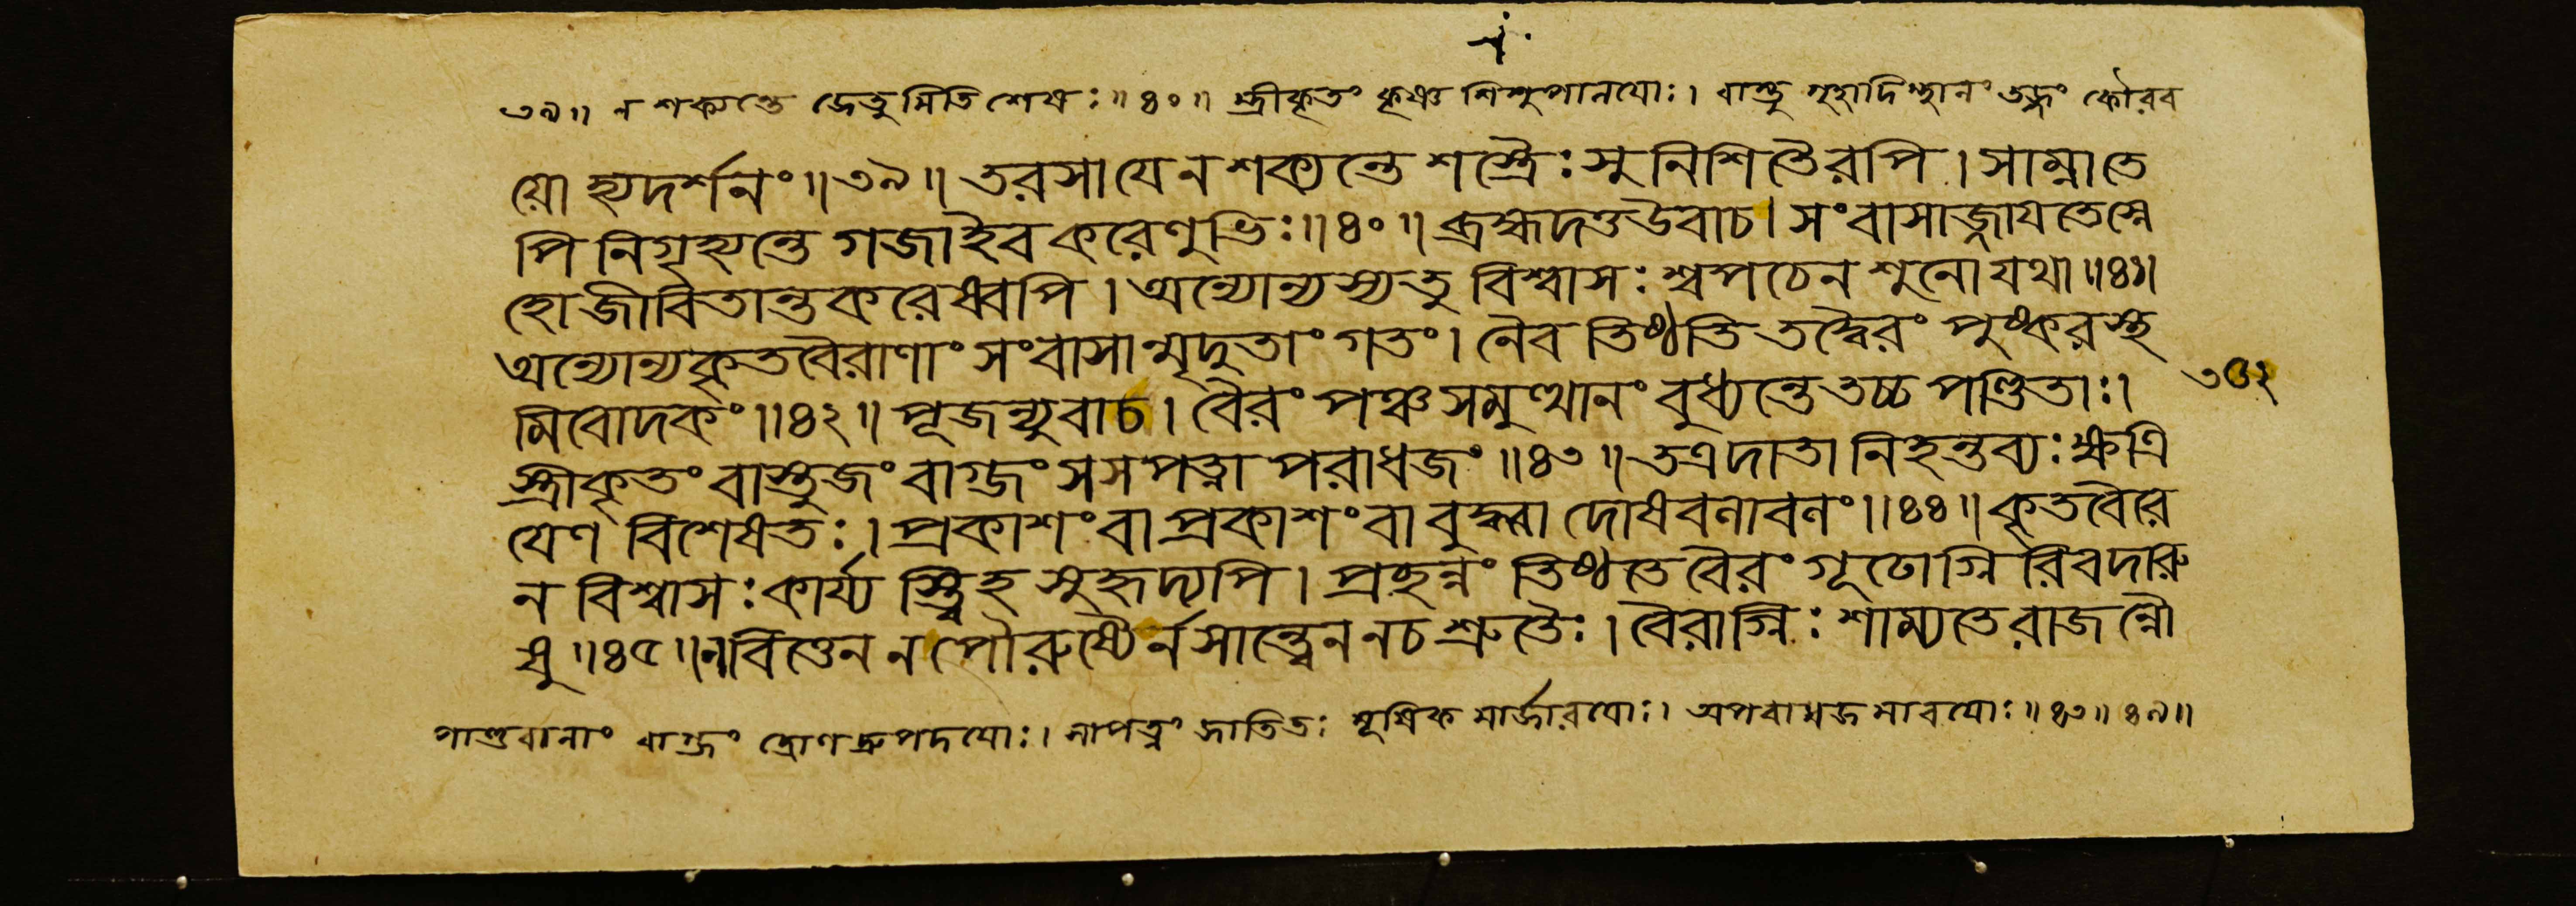 ৩৯॥ ন শক্যন্তে জেতুমিতি শেষঃ॥৪০॥ স্ত্রীকৃতং কৃষ্ণ শিশুপালযোঃ। বাস্তু গৃহাদিস্থানং তজ্জং কৌরব
য়ো হ্যদর্শনং॥৩৯॥ তরসা যে ন শক্যন্তে শস্ত্রৈঃ সুনিশিতৈরপি। সাম্না তে
পি নিগৃহ্যন্তে গজা ইব করেণুভিঃ॥৪০॥ ব্রহ্মদত্ত উবাচ। সংবাসাজ্জাযতে স্নে
হো জীবিতান্তকরেষ্বপি। অন্যোন্যস্য তু বিশ্বাসঃ শ্বপচেন শুনো যথা॥৪১॥
অন্যোন্যকৃতবৈরাণাং সংবাসান্মৃদুতাং গতং। নৈব তিষ্ঠতি তদ্বৈরং পুষ্করস্থ
মিবোদকং॥৪২॥ পূজন্যুবাচ। বৈরং পঞ্চসমুত্থানং বুধ্যন্তে তচ্চ পণ্ডিতাঃ।
৩৫২
স্ত্রীকৃতং বাস্তুজং বাগ্জং সসপত্না পরাধজং॥৪৩॥ তত্র দাতা নিহন্তব্যঃ ক্ষত্রি
যেণ বিশেষতঃ। প্রকাশং বাপ্রকাশং বা বুদ্ধ্বা দোষবলাবলং॥৪৪॥ কৃতবৈরে
ন বিশ্বাসঃ কার্য্য স্ত্বিহ সুহৃদ্যপি। প্রছন্নং তিষ্ঠতে বৈরং গূঢোগ্নিরিব দারু
ষু॥৪৫॥ ন বিত্তেন ন পৌরুষ্যৈর্ন সান্ত্বেন ন চ শ্রুতৈঃ। বৈরাগ্নিঃ শাম্যতে রাজন্নৌ
পাণ্ডবানাং বাগ্জং দ্রোণদ্রুপদযোঃ। সাপত্নং জাতিতঃ মূষিক মার্জারযোঃ। অপরাধজমাবযোঃ॥৪৩॥৪৯॥